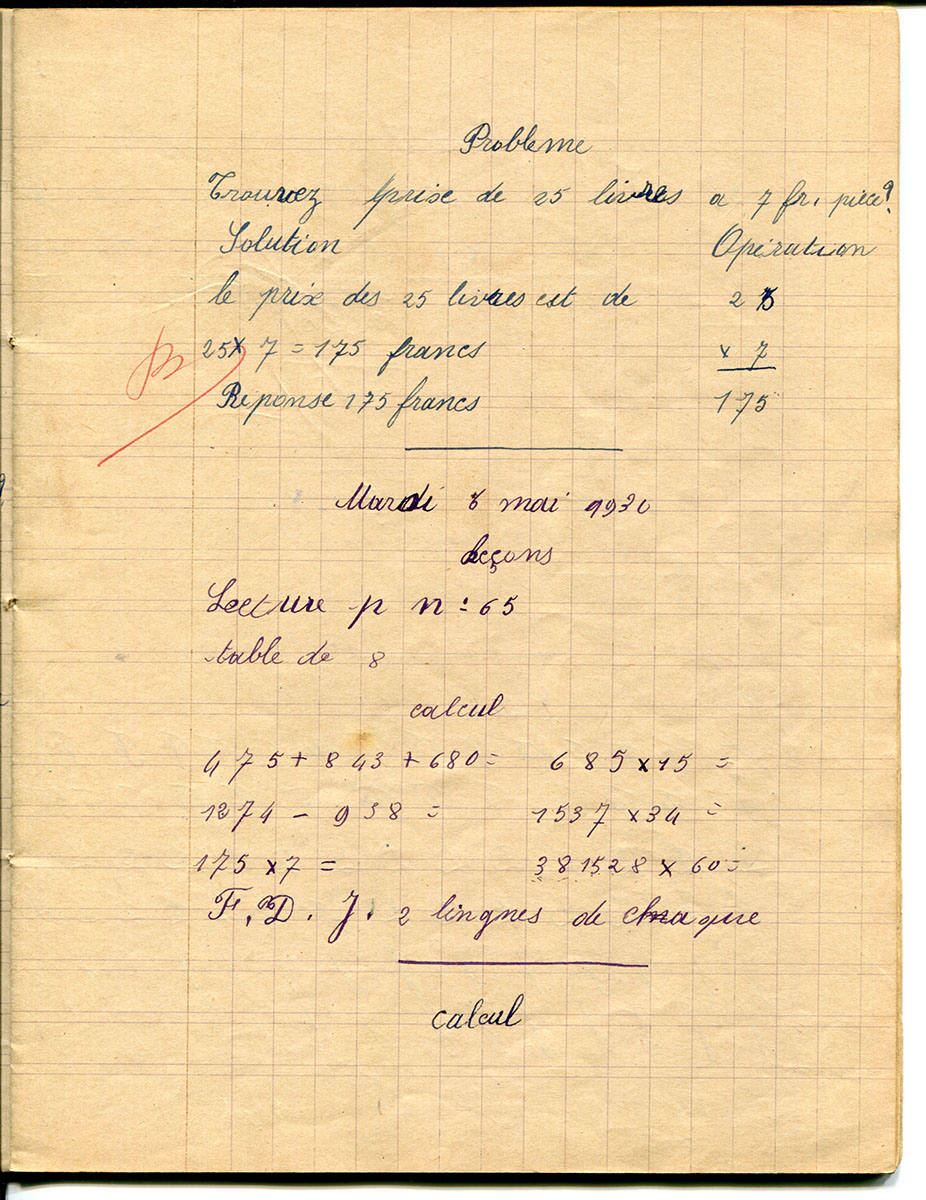 Probleme
Trouvez lprix de 25 livres a 7 fr. pièce?
Solution Opération
le prix des 25 livres est de 25
25 x 7 = 175 francs x 7
Réponse 175 francs 175
Mardi 6 mai 1930
Leçons
Lecture p n: 65
table de 8
calcul
475 + 843 + 680 = 685 x 15 =
1274 - 938 = 1537 x 34 =
175 x 7 = 381528 x 60 =
F. D. J. 2 lingnes de chaque
calcul